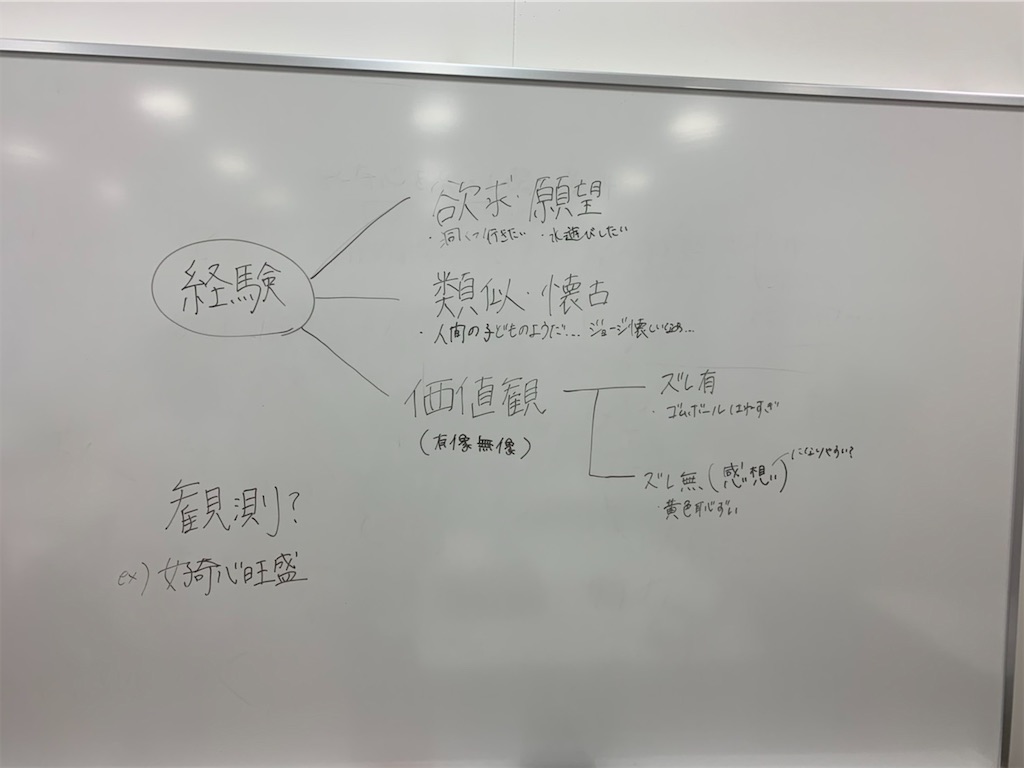 経験
欲求・願望
・洞くつ行きたい ・水遊びしたい
類似・懐古
・人間の子どものようだ... ジョージ懐しいなぁ...
価値観
(有像無像)
ズレ有
・ゴムボールはねすぎ
ズレ無(感想)になりやすい?
・黄色恥ずい
観測?
ex)好奇心旺盛